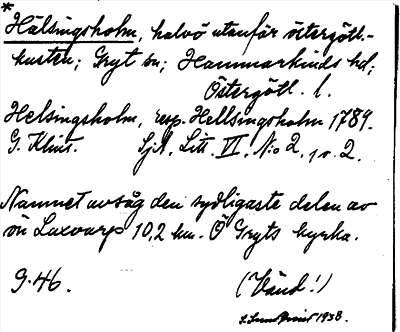 *
Hälsingsholm, halvö utanför östergötl.-
kusten; Gryt sn; Hammarkinds hd;
Östergötl. l.
Helsingsholm, resp. Hellsingsholm 1789.
G. Klint. Sjk. Litt. VI. No 2, 1 o. 2.
Namnet avsåg den sydligaste delen av
ön Laxvarp 10,2 km. Ö Gryts kyrka.
9.46. (Vänd!)
1938.